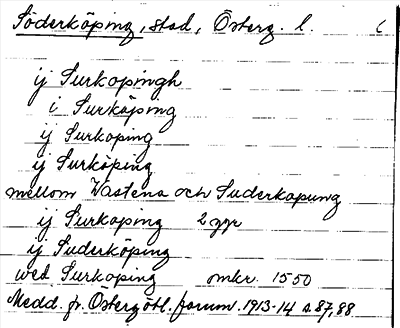 Söderköping, stad, Österg. l.
ij Surkopingh
i Surköping
ij Surkoping
ij Surköping
mellom Wastena och Suderkopung
ij Surkoping 2 ggr
ij Suderköping
wed Surkoping omkr. 1550
Medd. fr. Östergötl. fornm. 1913-14 s. 87, 88